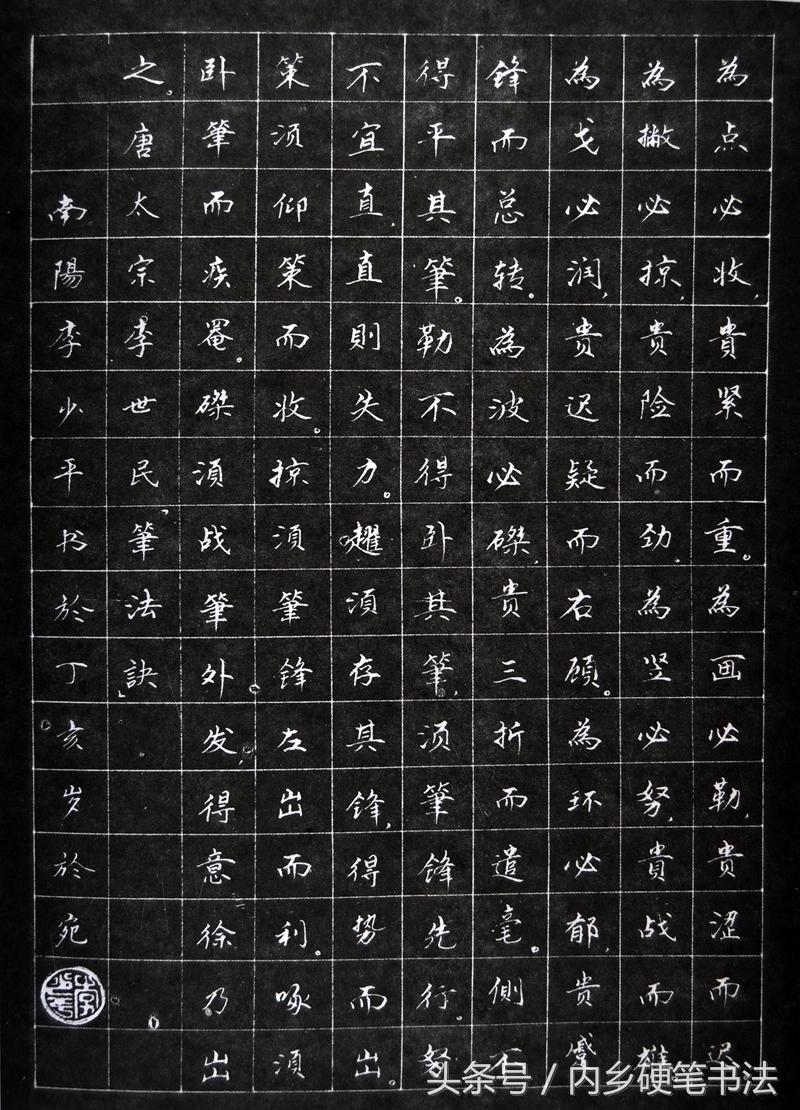 為点必收，貴紧而重。為画必勒，贵涩而迟
為撇必掠，贵险而劲，為竖必努，貴战而雄
為戈必润，贵迟疑而右顾。為环必郁，贵而
鋒而总转。為波必磔，贵三折而遣毫。側不
得平其筆。勒不得卧其筆，须筆鋒先行。努
不宜直，直則失力。趯須存其鋒，得势而出。
策須仰策而收。掠須筆鋒左出而利。啄須
卧筆而疾罨。磔須战筆外发，得意徐乃出
之。唐太宗李世民「筆法訣」
南陽李少平书於丁亥岁於宛
头条号 / 内乡硬笔书法